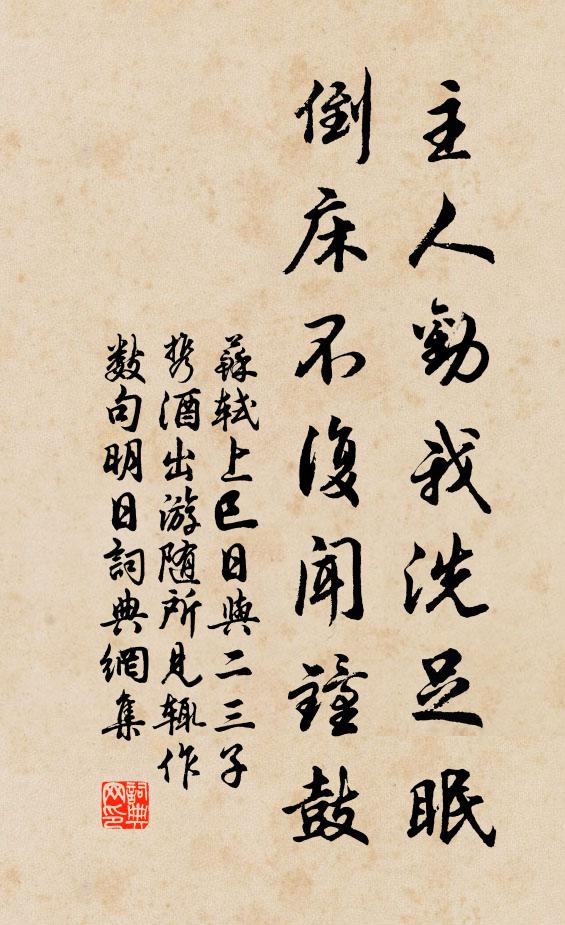 主人勸我洗足眠
倒床不復聞鐘鼓
蘇軾上巳日與二三子
携酒出游随所見輒作
數句明日詞典網集
詞典
网印